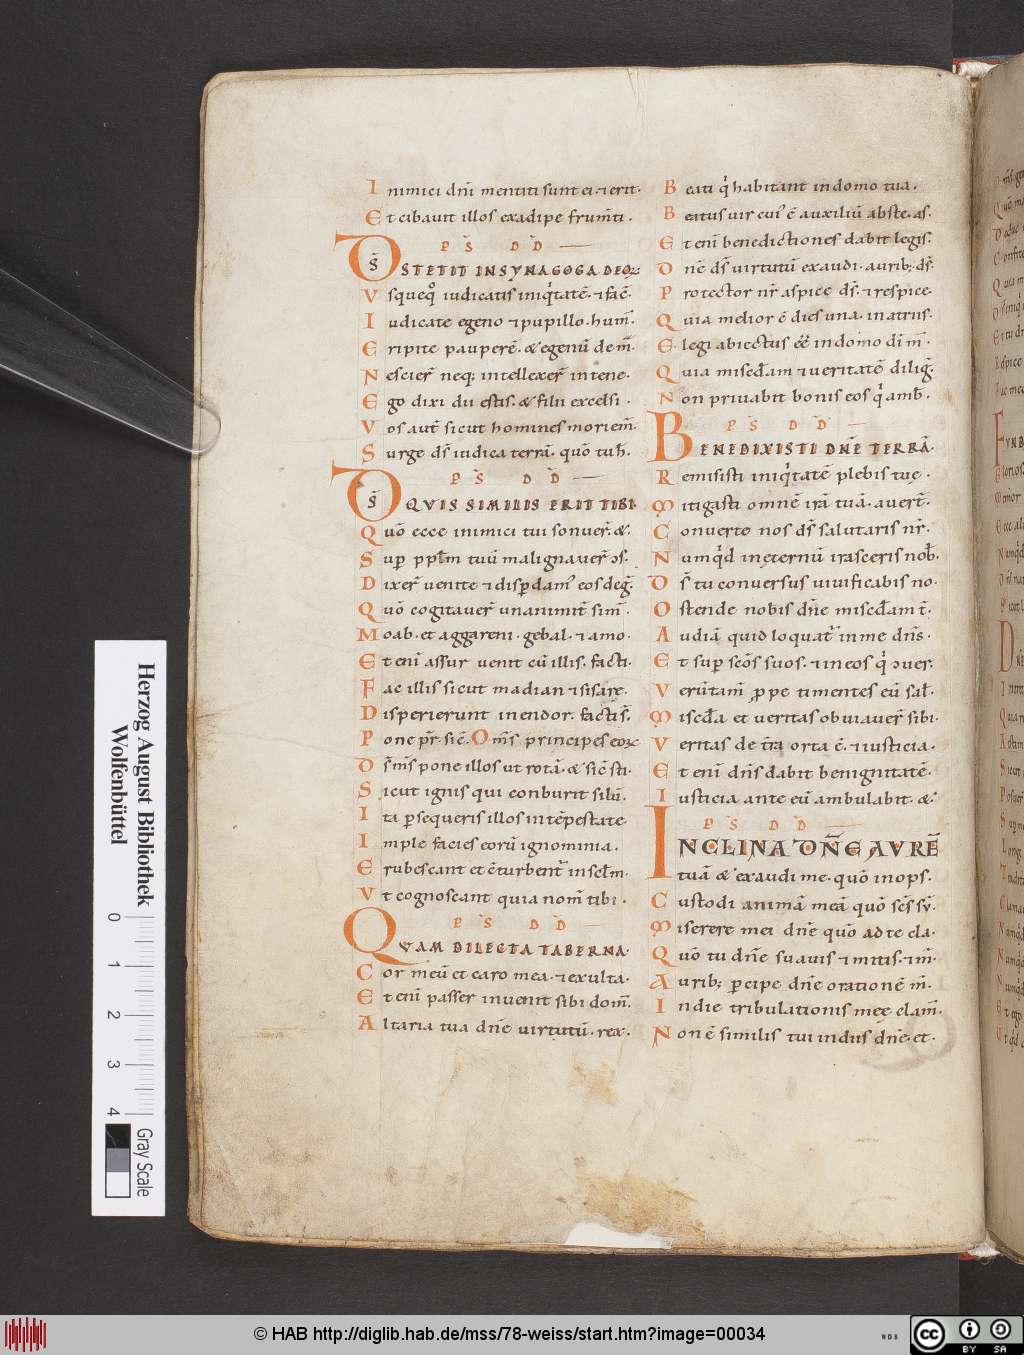 Inimici dñi mentiti sunt ei · ⁊ erit ·
Et cibavit illos exadipe frum̃ti ·
PS̃ DD̃
D̃S STETIT IN SYNAGOGA DEOꝜ
Vsqueqͦ iudicatis iniqͥtatẽ · ⁊ facẽ ·
Iudicate egeno ⁊ pupillo · hum̃ ·
Eripite pauperẽ · & egenũ de m̃ ·
Nescier̃ neq; intellexer̃ in tene ·
Ego dixi dii estis · & filii excelsi ·
Vos aut̃ sicut homines moriem̃ ·
Surge ds̃ iudica terrã · quõ tu h ·
PS̃ DD̃
D̃S QVIS SIMILIS ERIT TIBI
Quõ ecce inimici tui sonuer̃ · &
Suꝑ pp̃lm tuũ malignauer̃ ɔs ·
Dixer̃ venite ⁊ disꝑdam᷒ eos deg̃ ·
Quõ cogitauer̃ unanimit̃ sim̃ ·
Moab · et aggareni · gebal · ⁊ amo ·
Et enĩ assur uenit cũ illis · facti ·
Fac illis sicut madian ⁊ sisarę ·
Disperierunt inendor · factis̃ ·
Pone pr̃ · sic̃ · Om̃s principes eoꝝ
D̃s m̃s pone illos ut rotã · & sic̃ sti ·
Sicut ignis qui conburit siluã ·
Ita ꝑsequeris illos in tẽpestate
Imple facies eorũ ignominia ·
Erubescant et c̃turbent᷑ in scl̃m ·
Vt cognoscant quia nom̃ tibi ·
PS̃ DD̃
QVAM DILECTA TABERNA ·
Cor meũ et caro mea · ⁊ exulta ·
Et enĩ passer inuenit sibi dom̃ ·
Altaria tua dñe uirtutũ · rex ·
Beati qͥ habitant in domo tua ·
Beatus uir cui᷒ ẽ auxiliũ abs te · as ·
Et enĩ benedictiones dabit legis ·
Dñe ds̃ uirtutũ exaudi · aurib; ds̃ ·
Protector nr̃ aspice ds̃ · ⁊ respice ·
Quia melior ẽ dies una · in atriis ·
Elegi abiectus ẽẽ in domo dĩ m̃ ·
Quia misc̃dam ⁊ ueritatẽ dilig̃ ·
Non priuabit bonis eos qͥ amb̃ ·
PS̃ DD̃
BENEDIXISTI DÑE TERRÃ ·
Remisisti iniqͥtatẽ plebis tuę ·
Mitigasti omnẽ irã tuã · auert̃ ·
Conuerte nos ds̃ salutaris nr̃ ·
Numqͥd inęternũ irasceris nob̃ ·
D̃s tu conuersus uiuificabis no ·
Ostende nobis dñe misc̃dam t̃ ·
Audiã quid loquat᷑ in me dñs ·
Et suꝑ scõs suos · ⁊ in eos qͥ ɔuer ·
Verũtam̃ ꝓpe timentes eũ sal̃ ·
Misc̃da et ueritas obuiauer̃ sibi ·
Veritas de t̃ra orta ẽ · ⁊ iusticia ·
Et enĩ dñs dabit benignitatẽ ·
Iusticia ante eũ ambulabit · &
PS̃ DD̃
INCLINA DÑE AVRẼ
tuã & exaudi me · quõ inops ·
Custodi animã meã quõ sc̃s sũ ·
Miserere mei dñe quõ ad te cla ·
Quõ tu dñe suauis ⁊ mitis · ⁊ m̃ ·
Aurib; ꝑcipe dñe orationẽ m̃ ·
In die tribulationis meę clam̃ ·
Non ẽ similis tui in diis dñe · et ·
Herzog August Bibliothek
Wolfenbüttel
0 1 2 3 4
Gray Scale
© HAB http://diglib.hab.de/mss/78-weiss/start.htm?image=00034
WDB
cc BY SA